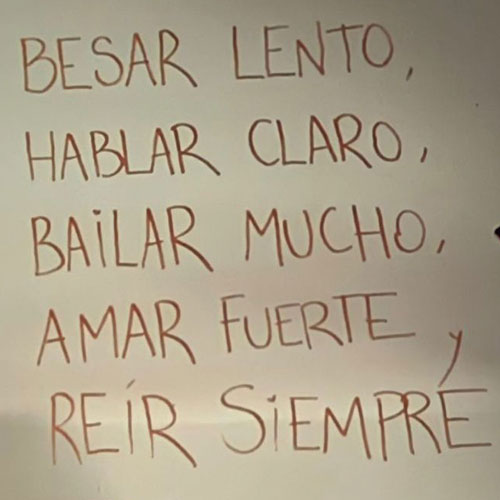 BESAR LENTO,
HABLAR CLARO,
BAiLAR MUCHO,
AMAR FUERTE y
REÍR SiEMPRE